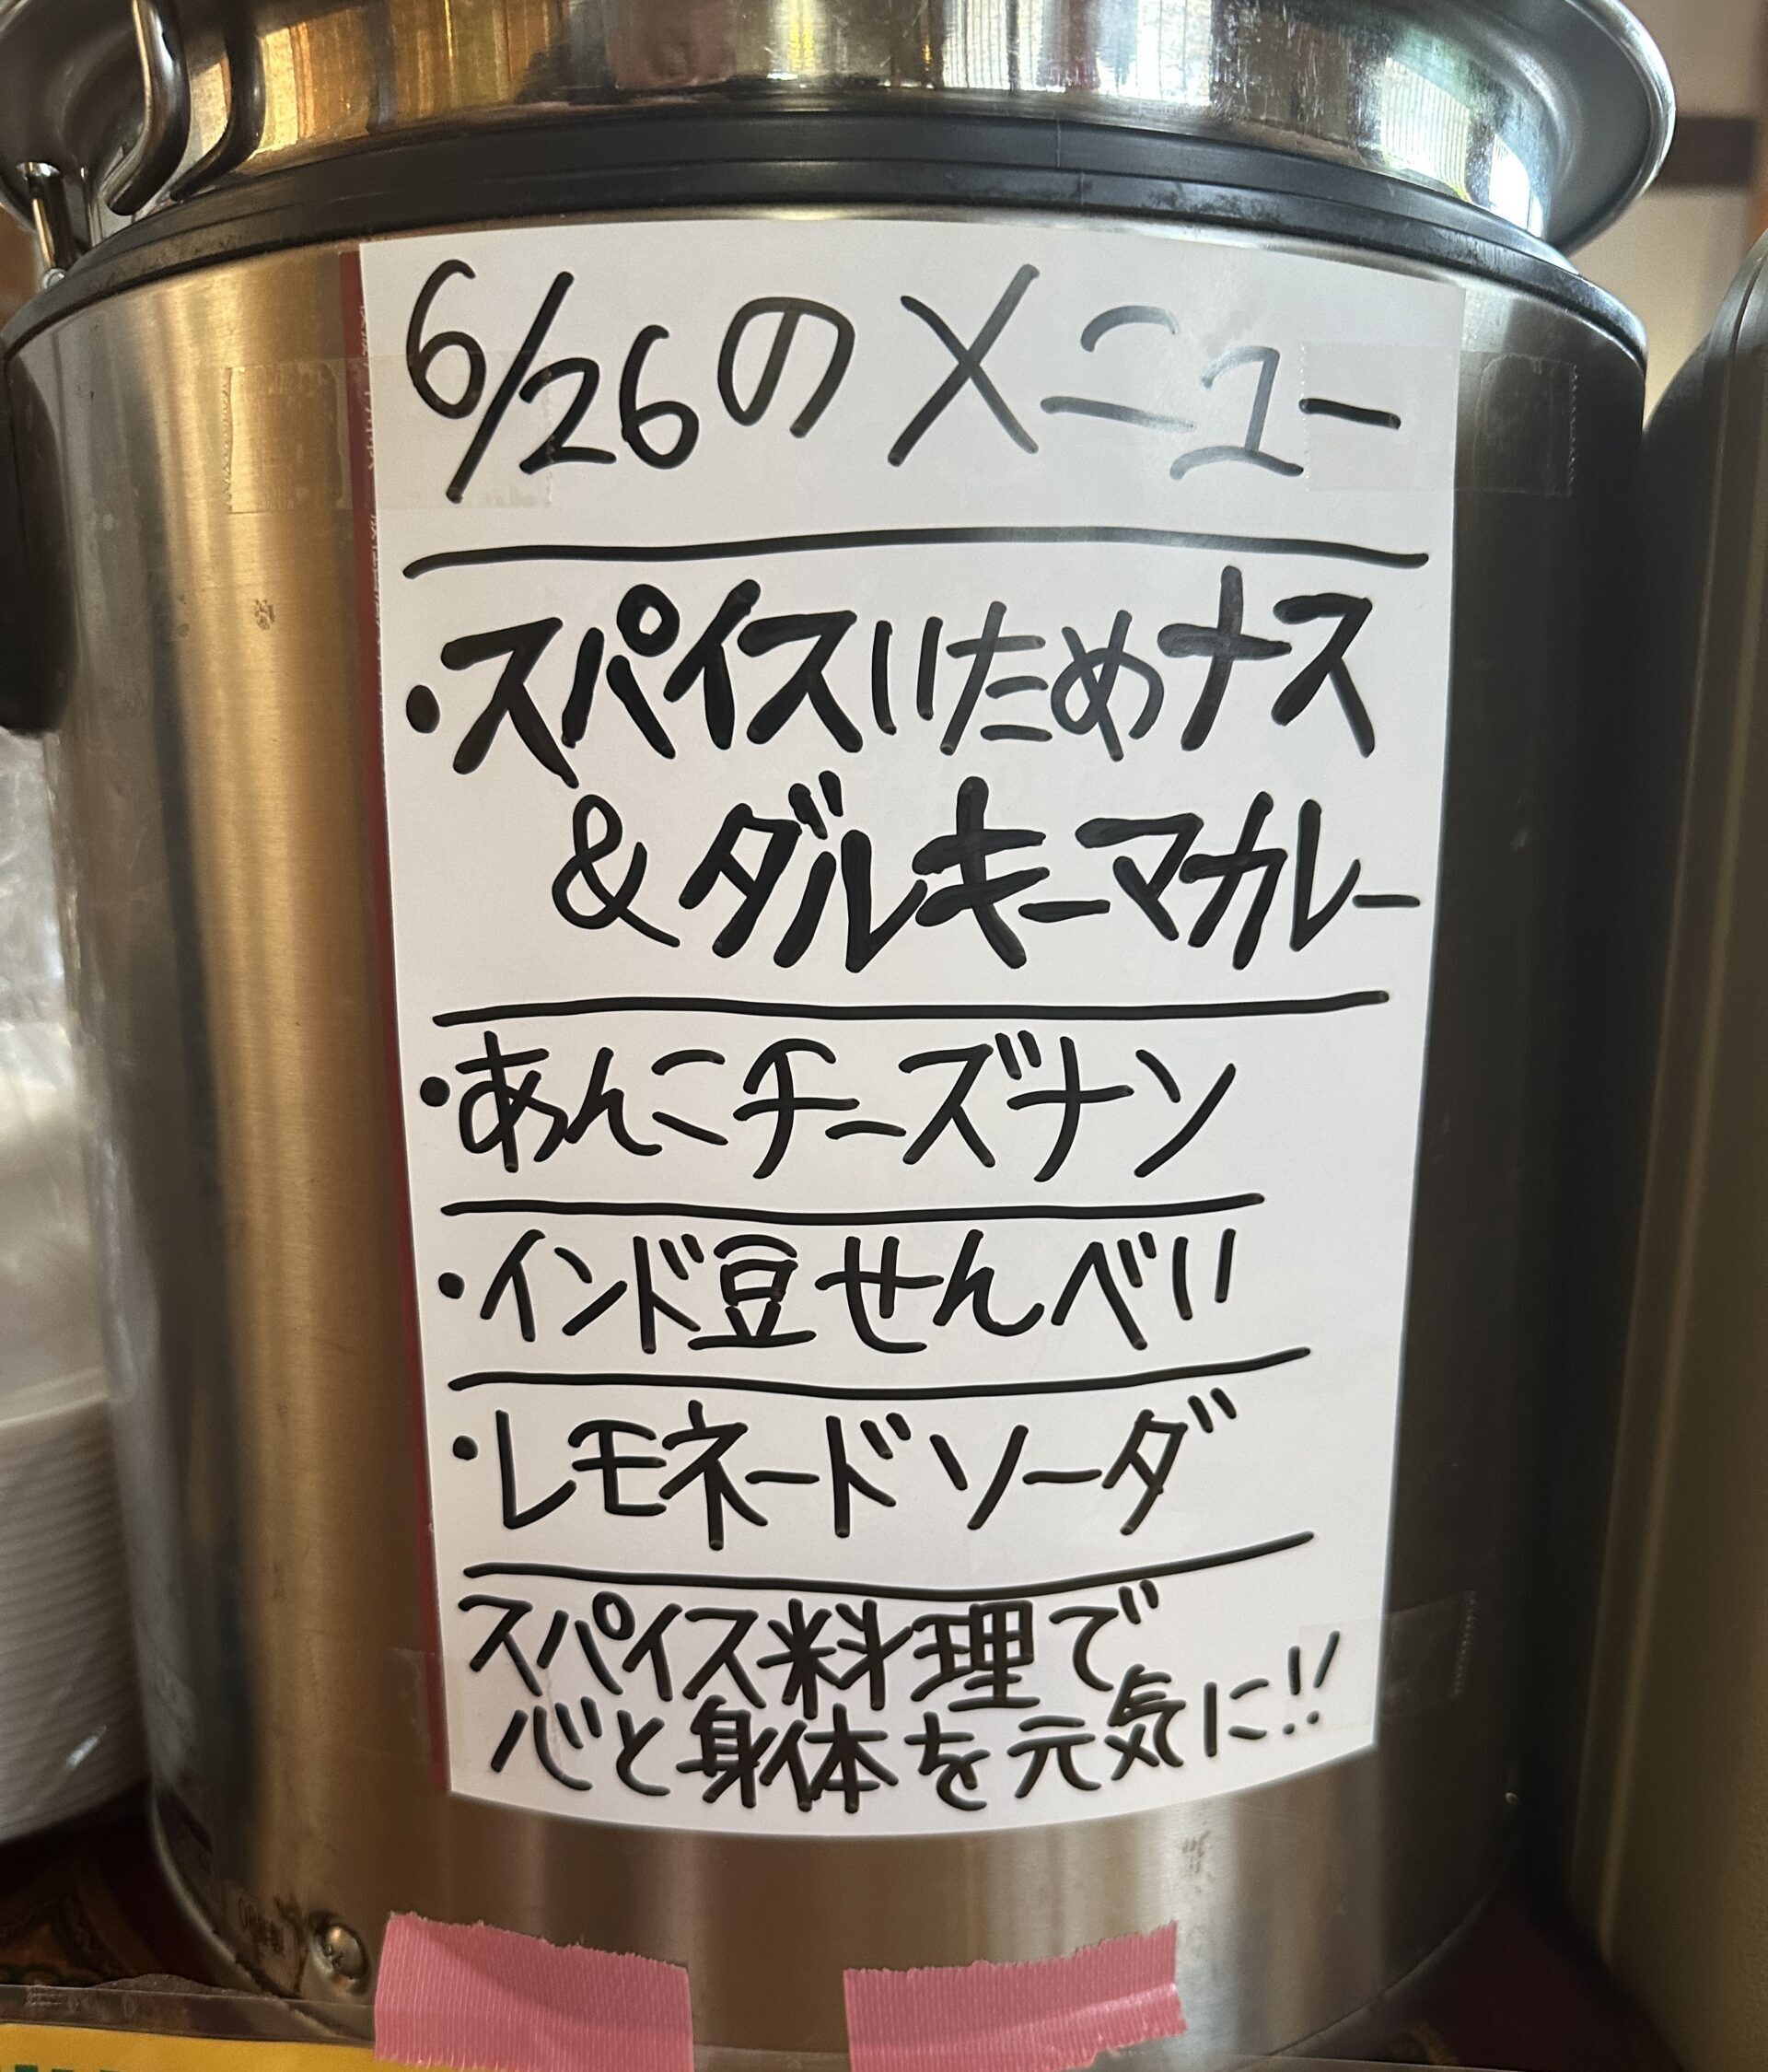 6/26のメニュー
・スパイスいためナス
&ダルキーマカレー
・あんこチーズナン
・インド豆せんべい
・レモネードソーダ
スパイス料理で
心と身体を元気に!!